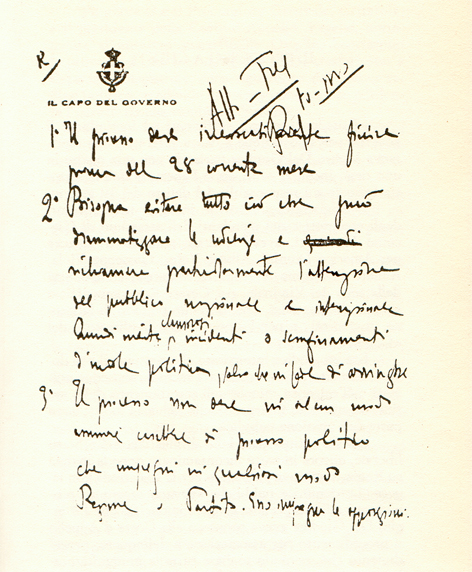 IL CAPO DEL GOVERNO
1° Il processo deve finire
prima del 28 corrente mese
2° Bisogna evitare tutto ciò che può
drammatizzare le udienze e
richiamare particolarmente l'attenzione
del pubblico nazionale e internazionale
Quindi niente clamorosi incidenti o sconfinamenti
d'indole politica, salvo che in sede di arringhe
3° Il processo non deve in alcun modo
assumere carattere di processo politico
che impegni in qualsiasi modo
Regime o Partito. Esso impegna le opposizioni.